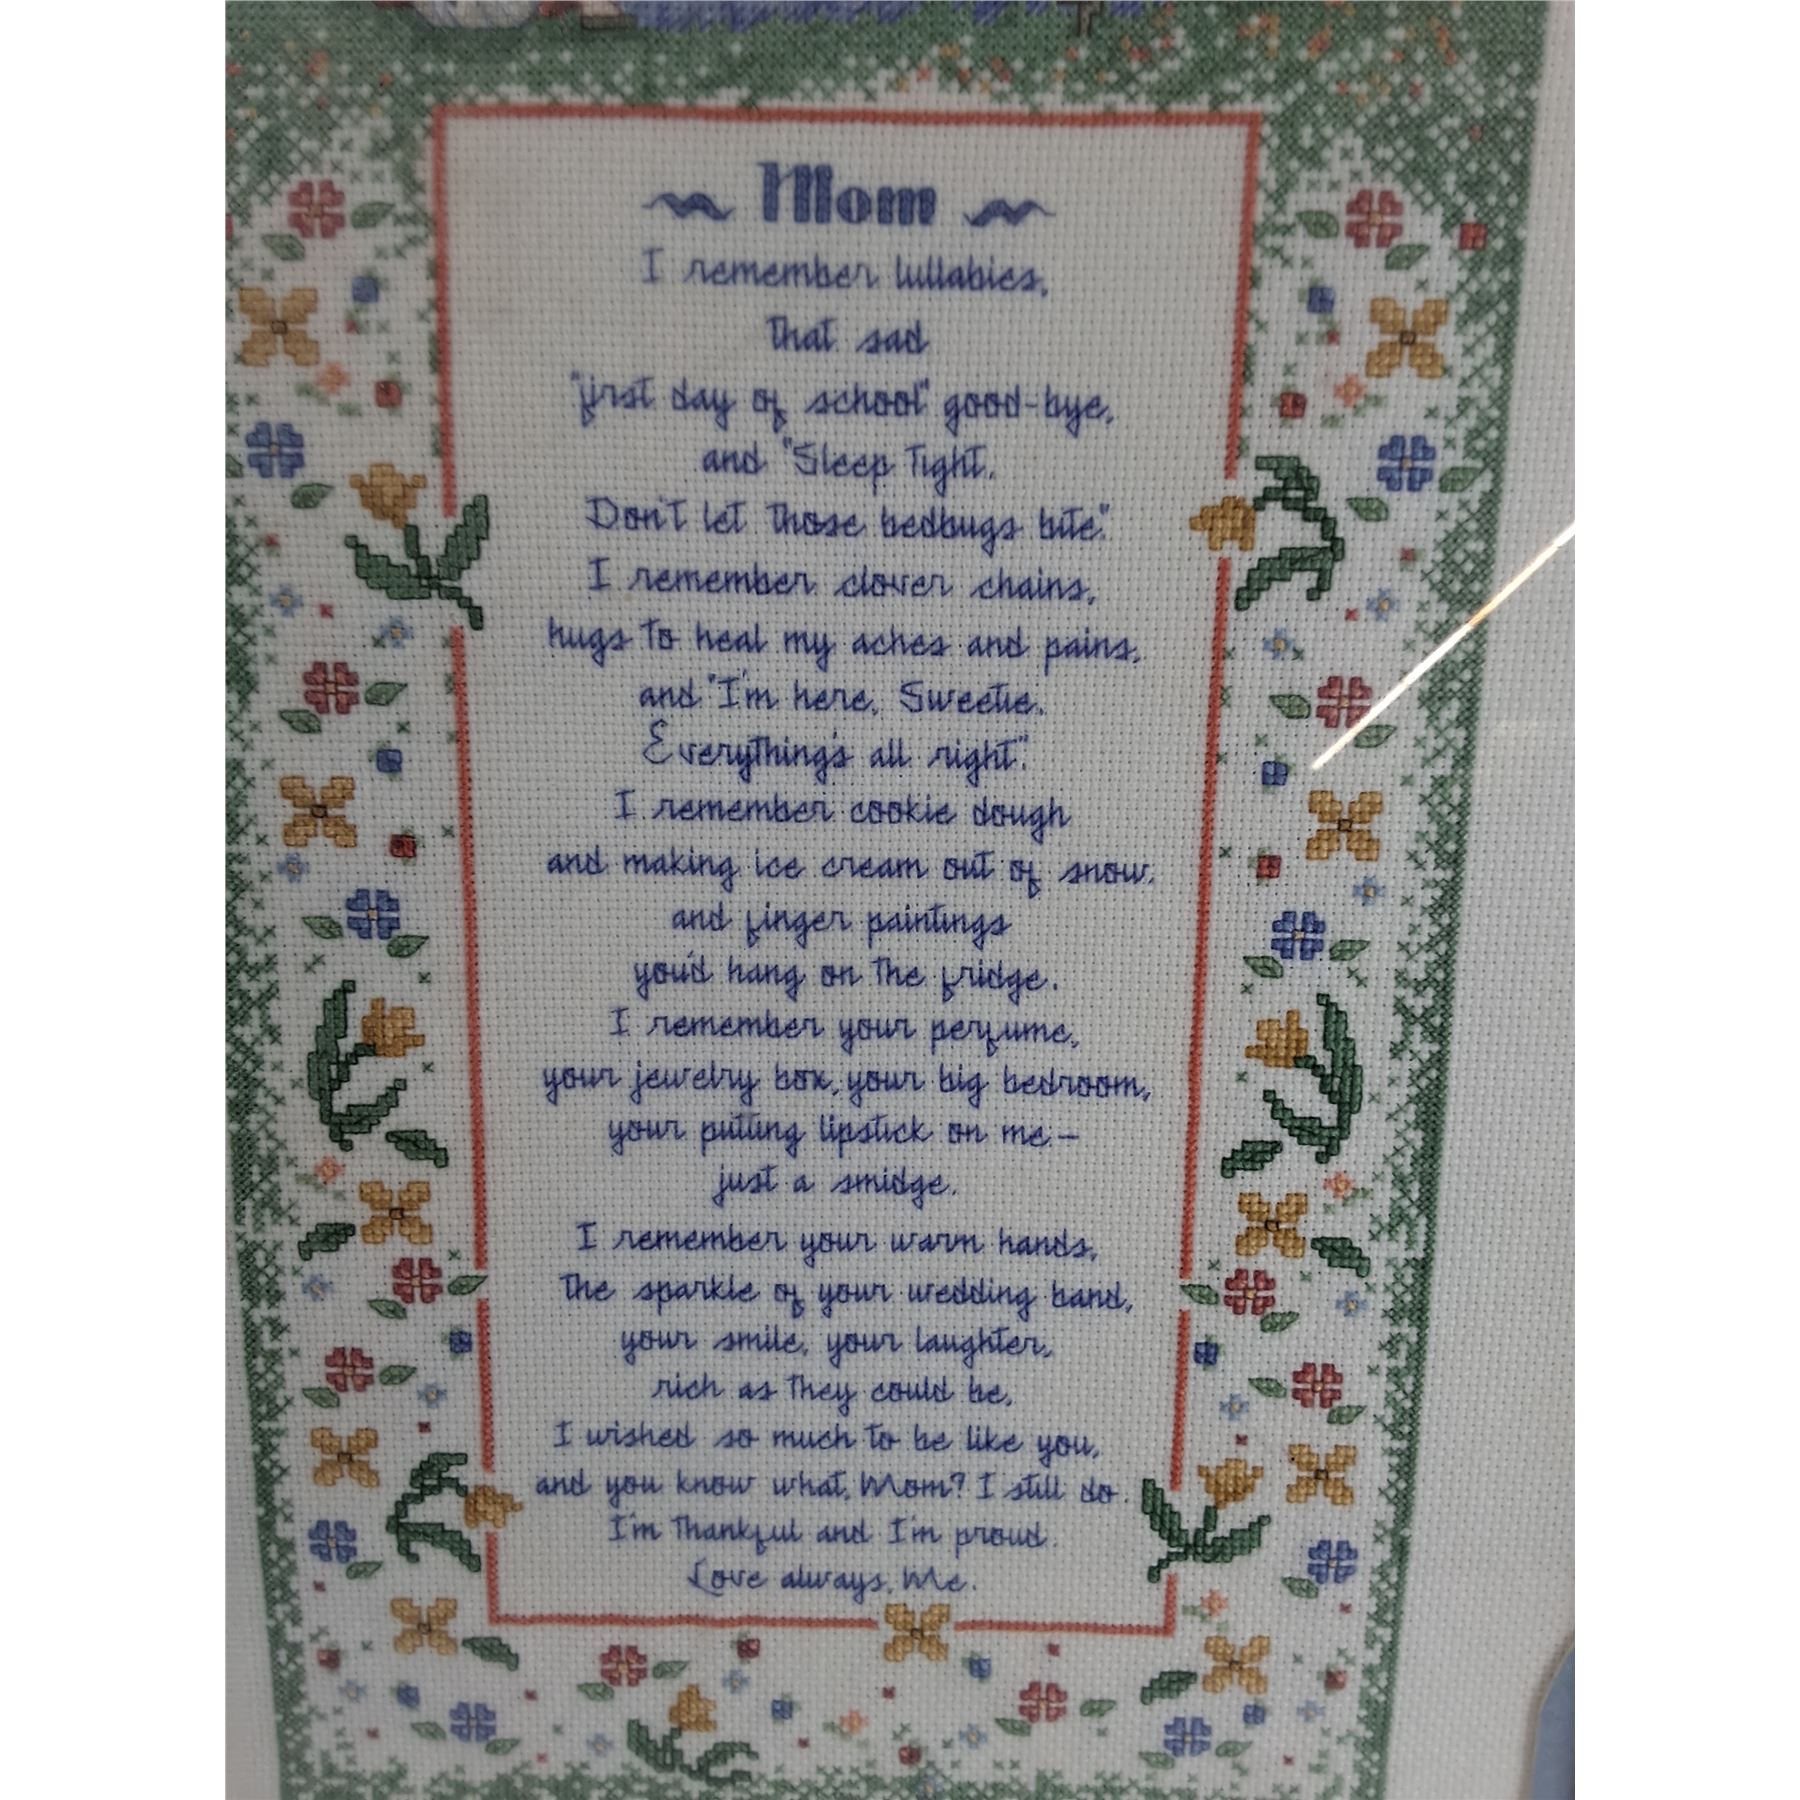 Mom
I remember lullabies,
that sad
"first day of school" good-bye,
and "Sleep Tight.
Don't let those bedbugs bite."
I remember clover chains,
hugs to heal my aches and pains,
and "I'm here, Sweetie.
Everything's all right".
I remember cookie dough
and making ice cream out of snow.
and finger paintings
you'd hang on the fridge.
I remember your perfume,
your jewelry box, your big bedroom,
your putting lipstick on me –
just a smidge.
I remember your warm hands,
the sparkle of your wedding band,
your smile, your laughter,
rich as they could be,
I wished so much to be like you,
and you know what, Mom? I still do.
I'm thankful and I'm proud.
Love always, Me.